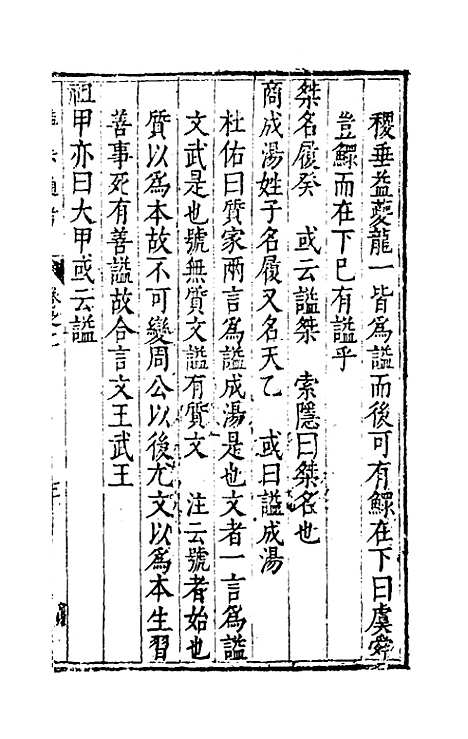 稷垂益夔龍一皆爲謚而後可有鰥在下曰虞舜
豈鰥而在下已有謚乎
桀名履癸　或云謚桀　索隱曰桀名也
商成湯姓子名履又名天乙　或曰謚成湯
杜佑曰質家兩言爲謚成湯是也文者一言爲謚
文武是也號無質文謚有質文　注云號者始也
質以爲本故不可變周公以後尤文以爲本生習
善事死有善謚故合言文王武王
祖甲亦曰大甲或云謚